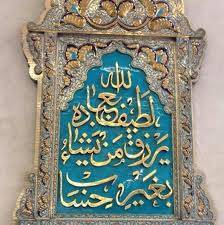 الله
لطيف بعباده
يرزق من يشاء
بغير حساب